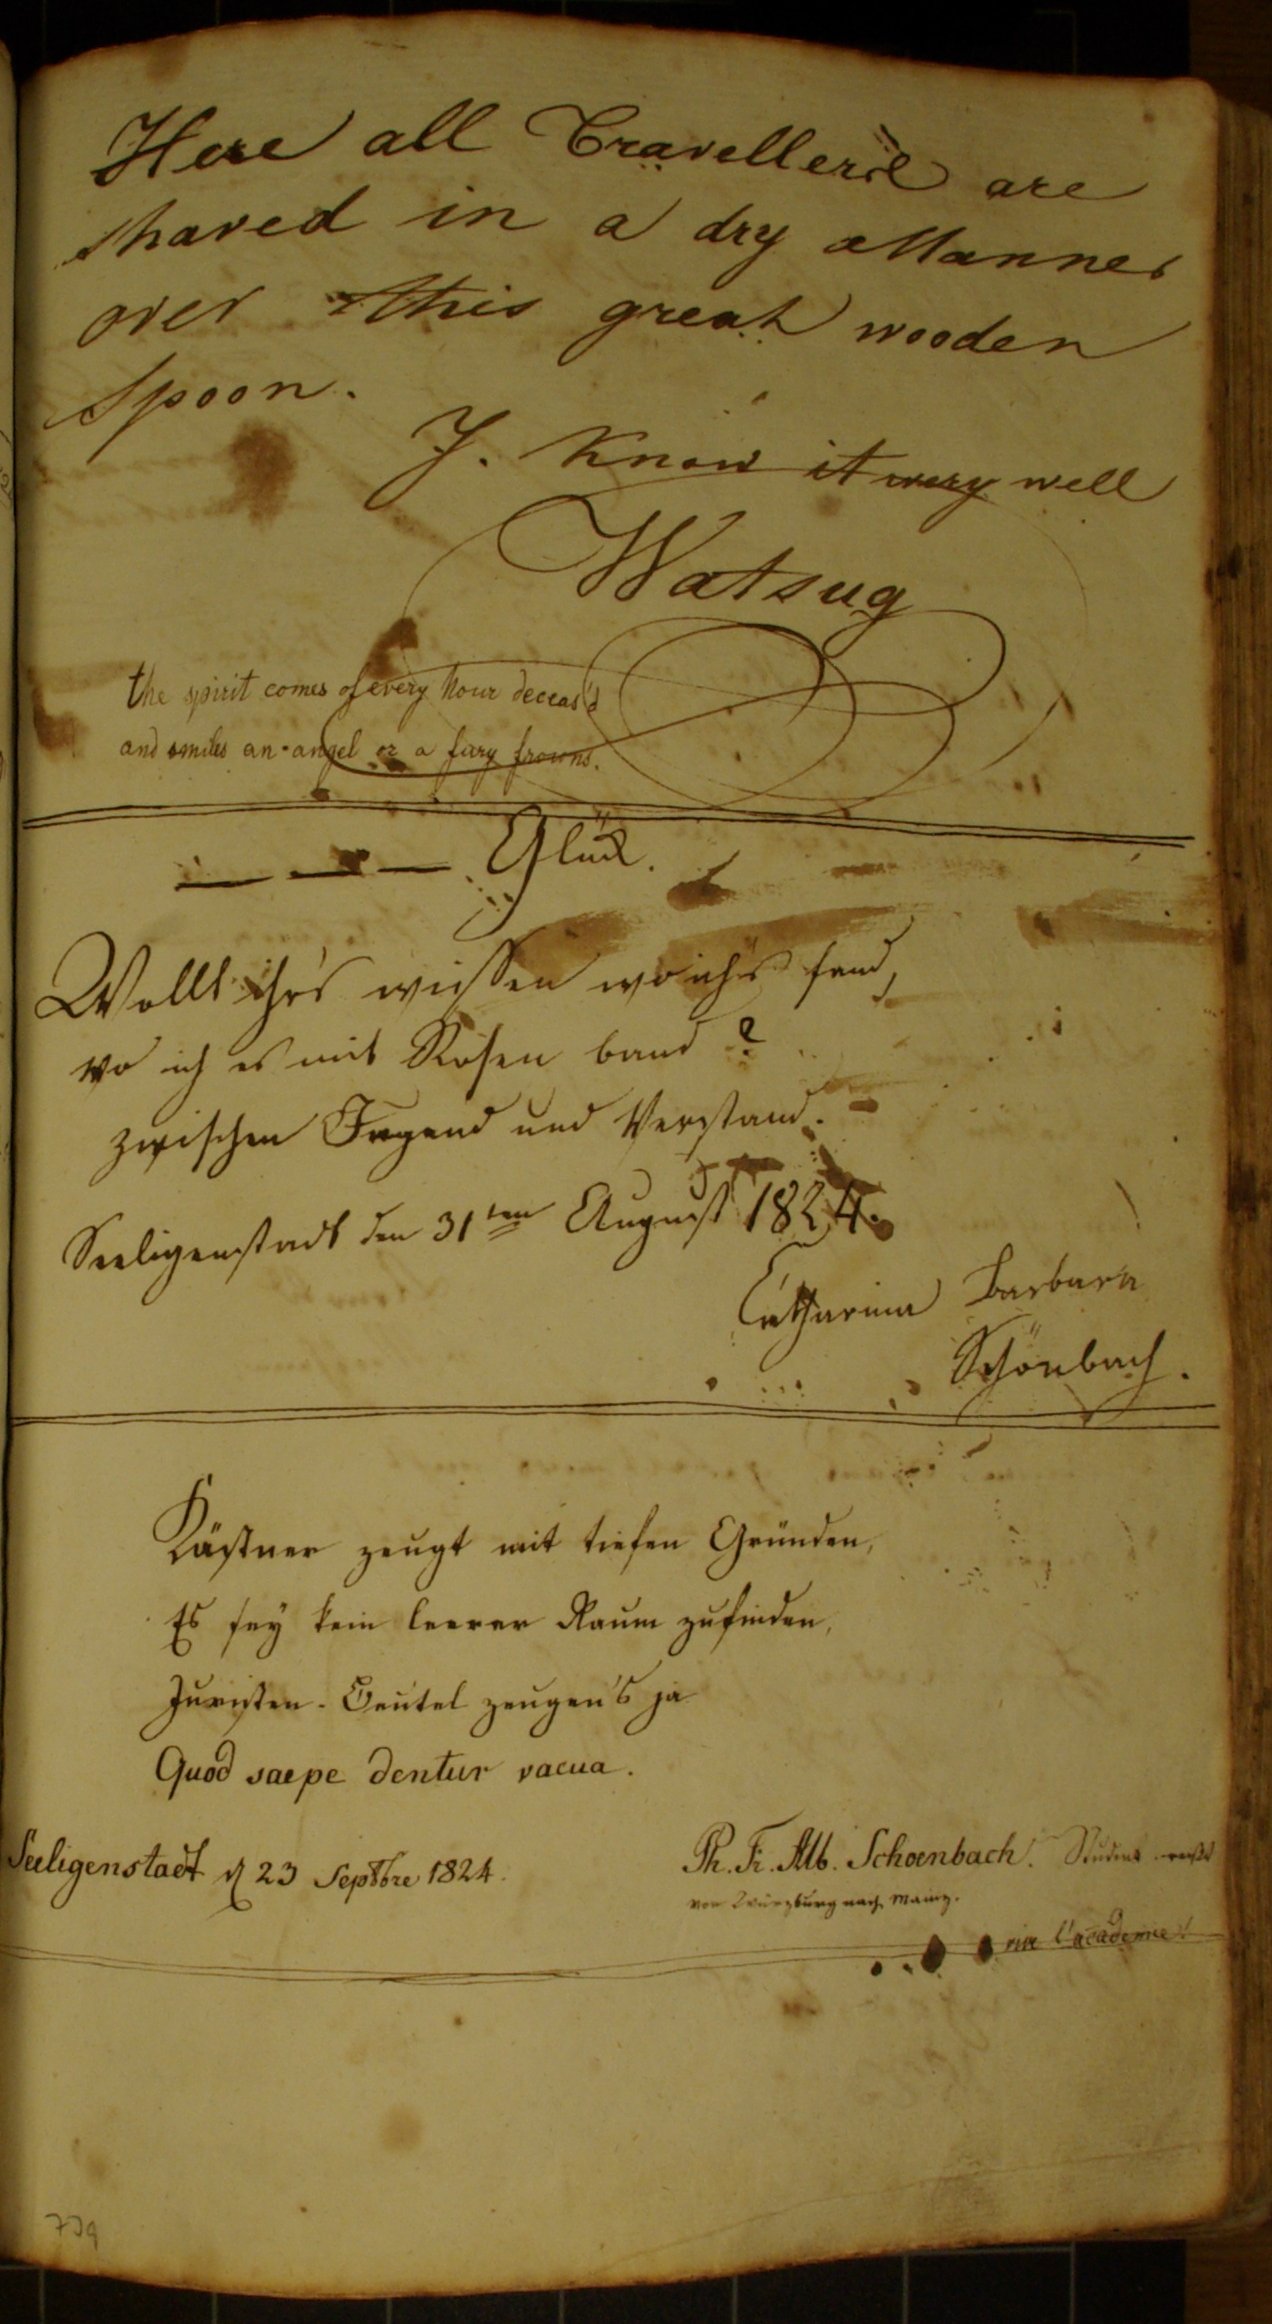 Here all Travellers are
shaved in a dry Manner
over this great wooden
Spoon.
J. Know it very well
Watsug
the spirit comes of every hour deceas'd
and smiles an angel or a fury frowns.
— — — Glück.
Wollt ihrs wissen wo ich's fand,
wo ich es mit Rosen band?
zwischen Tugend und Verstand.
Seeligenstadt den 31ten August 1824.
Catharina Barbara
Schönbach.
Kästner zeugt mit tiefen Gründen,
Es sey kein leerer Raum zufinden,
Juristen-Beutel zeugen's ja
Quod saepe dentur vacua.
Seeligenstadt d 23 Septbre 1824.
Ph. Fr. Alb. Schoenbach. Student
von Würzburg nach Mainz.
l'academie!